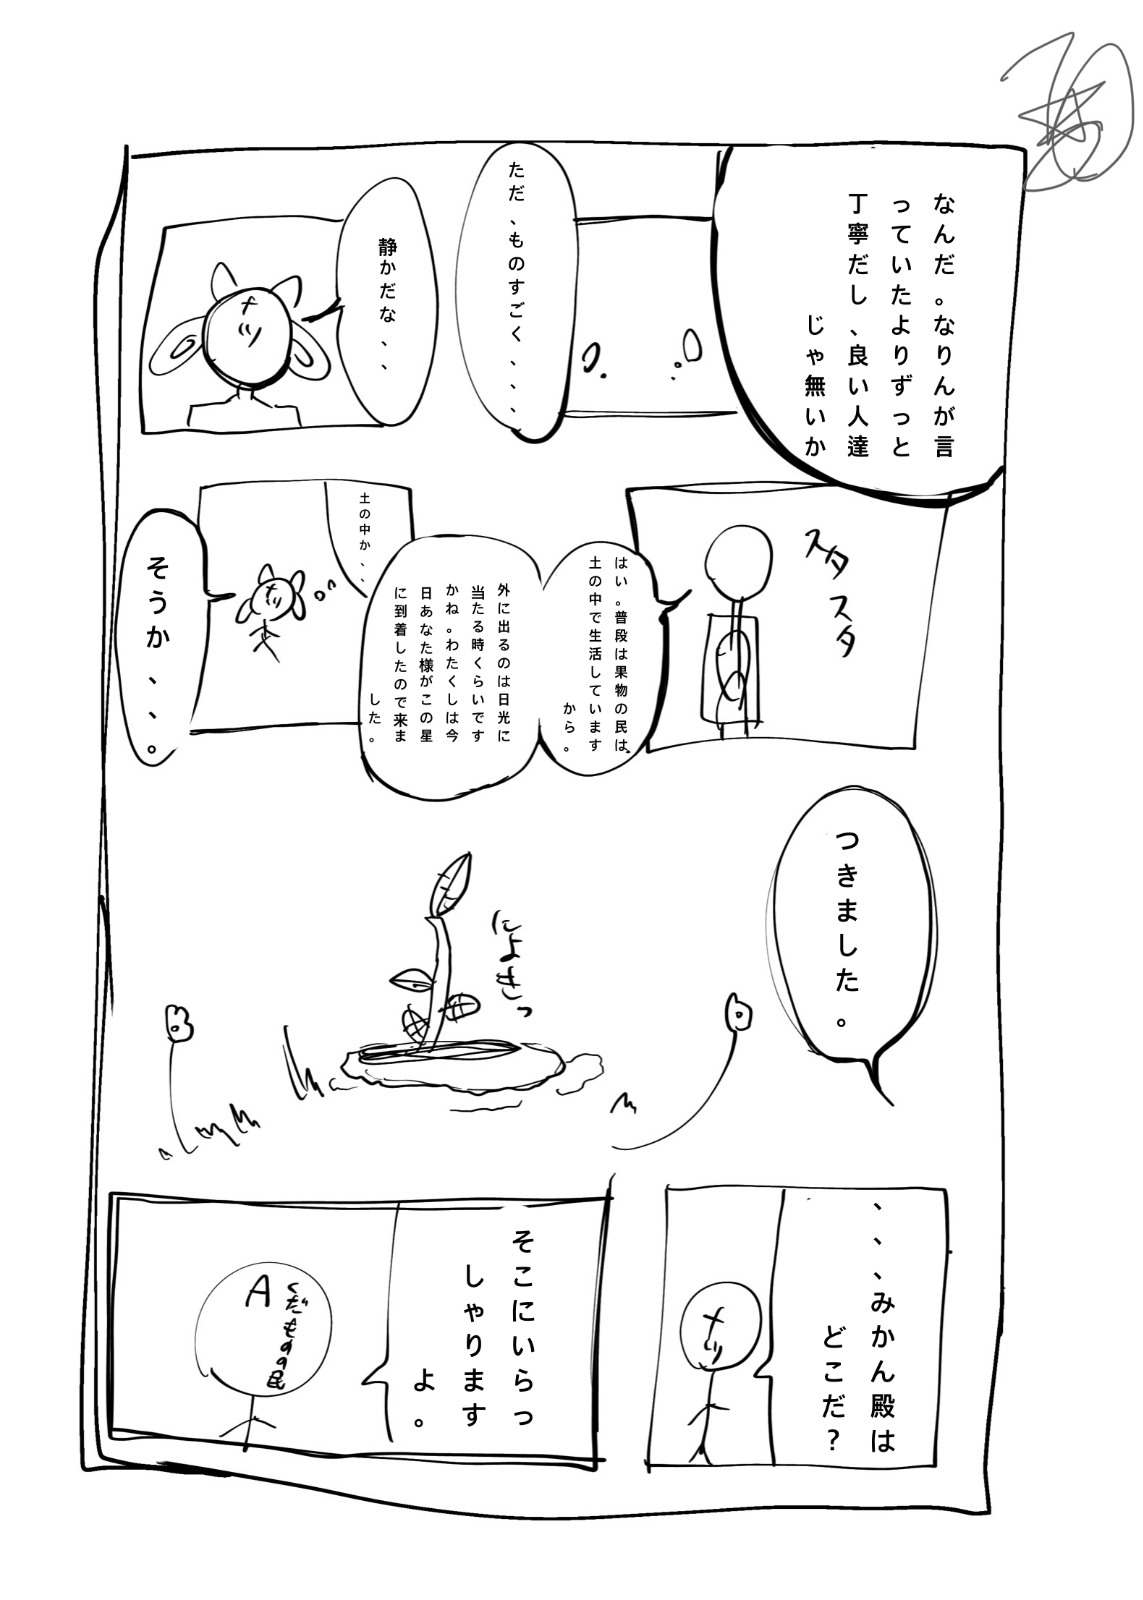 なんだ。なりんが言
っていたよりずっと
丁寧だし、良い人達
じゃ無いか
ただ、ものすごく、、、
静かだな、、
ナツ
スタ
スタ
はい。普段は果物の民は
土の中で生活しています
から。
外に出るのは日光に
当たる時くらいです
かね。わたくしは今
日あなた様がこの星
に到着したので来ま
した。
土の中か、、
ナツ
そうか、、、。
つきました。
にょきっ
、、、みかん殿は
どこだ?
ナツ
そこにいらっ
しゃります
よ。
くだものの民
A